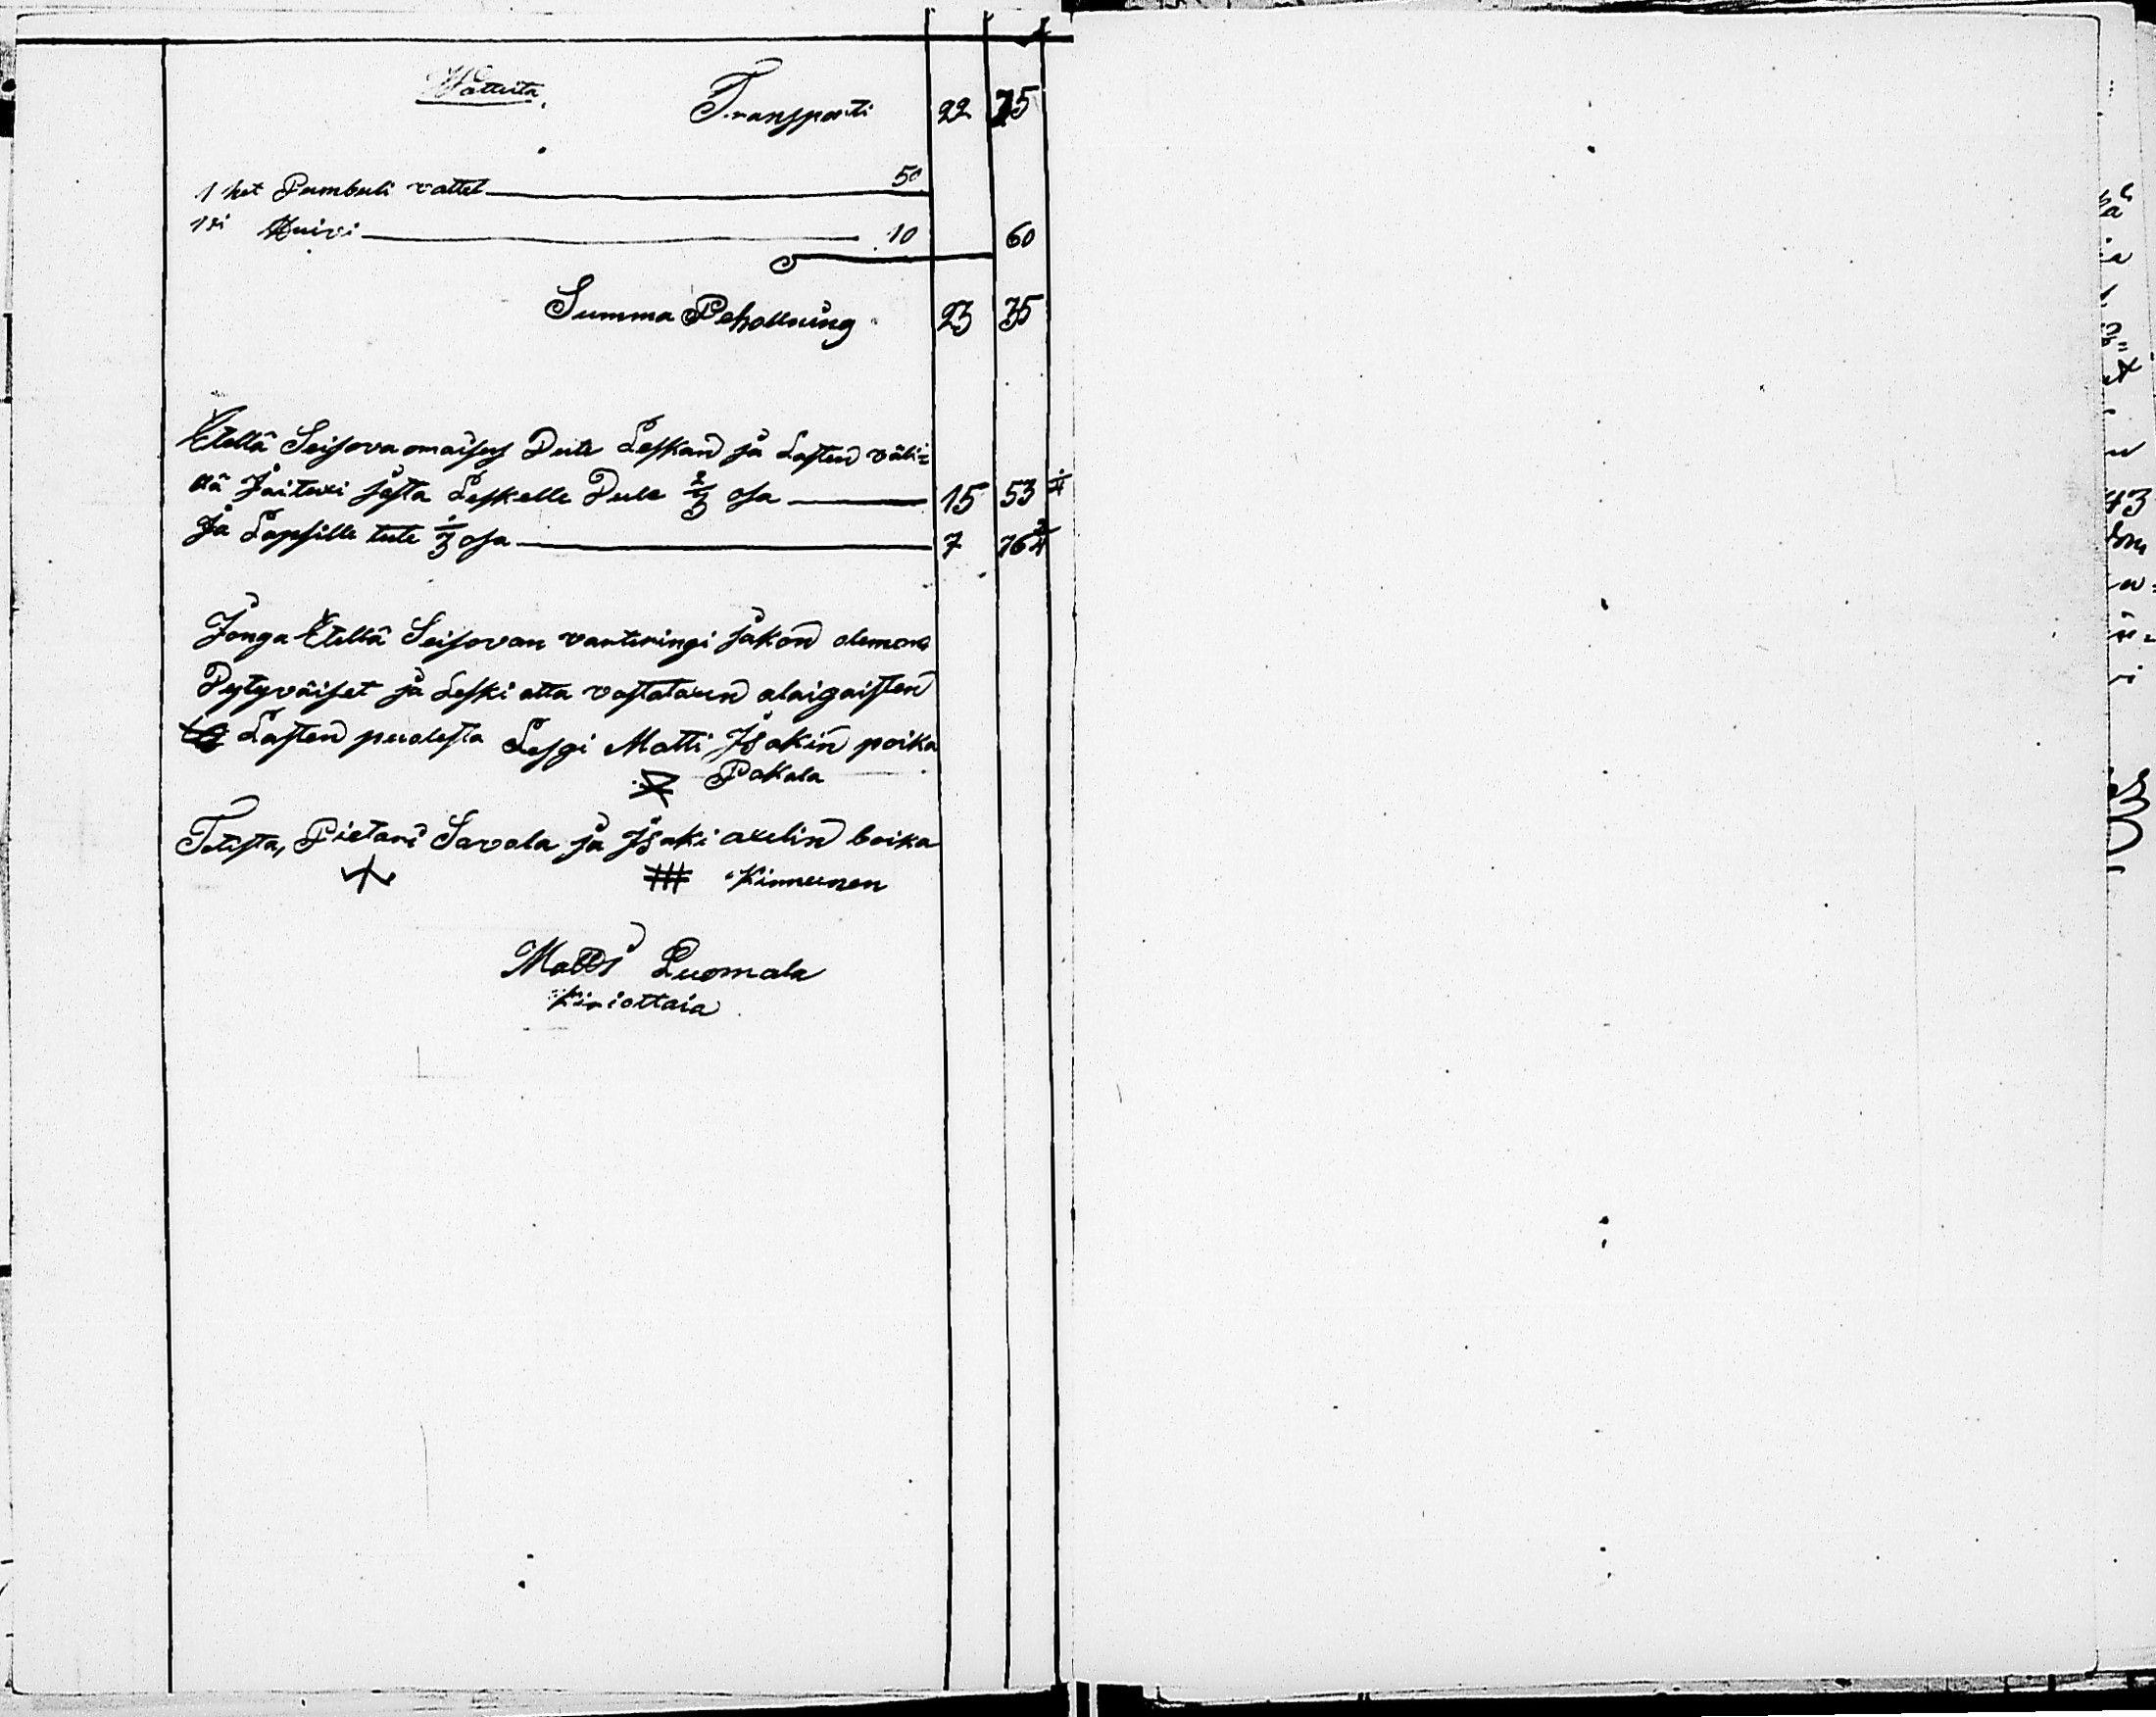 Watteita. Transporti 22 75
1 het Pumbuli vattet 50
1si Huivi 10 60
Summa Pehollning 23 35
Etellä Seisova omaisus Dule Leskan ja Lasten väli=
llä Jaituxi josta Leskelle Dule 2/3 osa 15 53 1/4
Ja Lapsille tule 1/3 osa 7 76 3/4
Jonga Etellä Seisovan varteringi jakon olemme
Dytyväiset ja Leski otta vastataxen alaigaisten
Lasten puolesta Lesgi Matti Isakin poika
Pakala
Totista, Pietari Savola ja Isaki axelin boika
Kinnunen
Matts Luomala
Kiriottaia